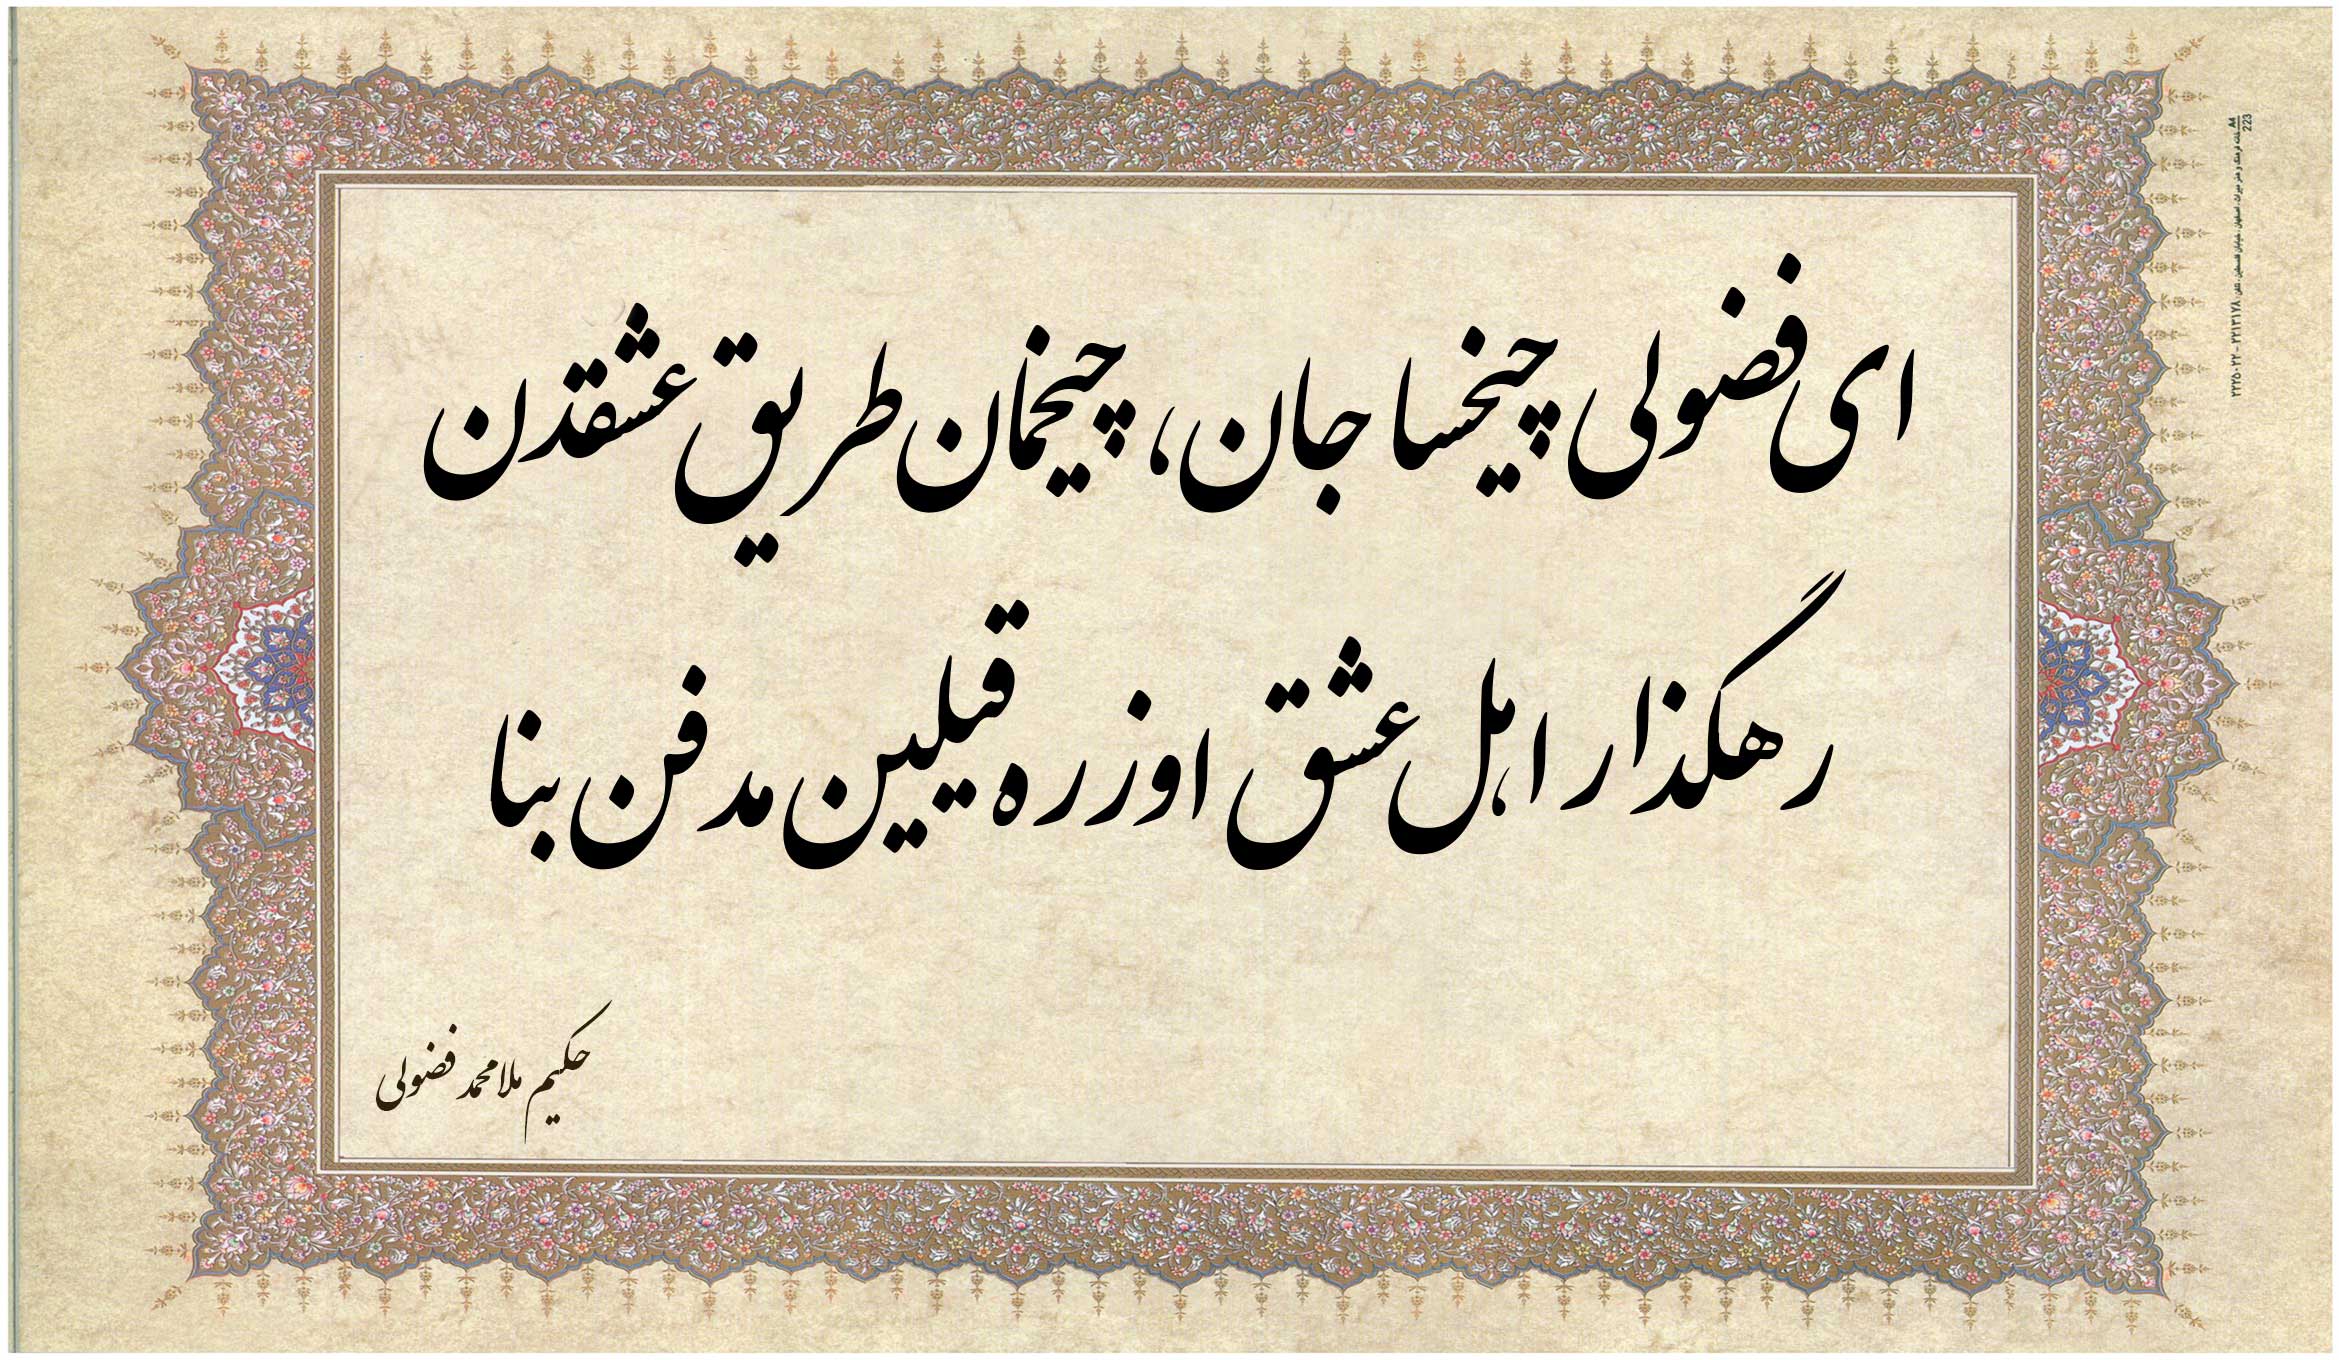 ای فضولی چیخسا جان، چیخمان طریق عشقدن
رهگذار اهل عشق اوزره قیلین مدفن بنا
حکیم ملامحمد فضولی
A4
223